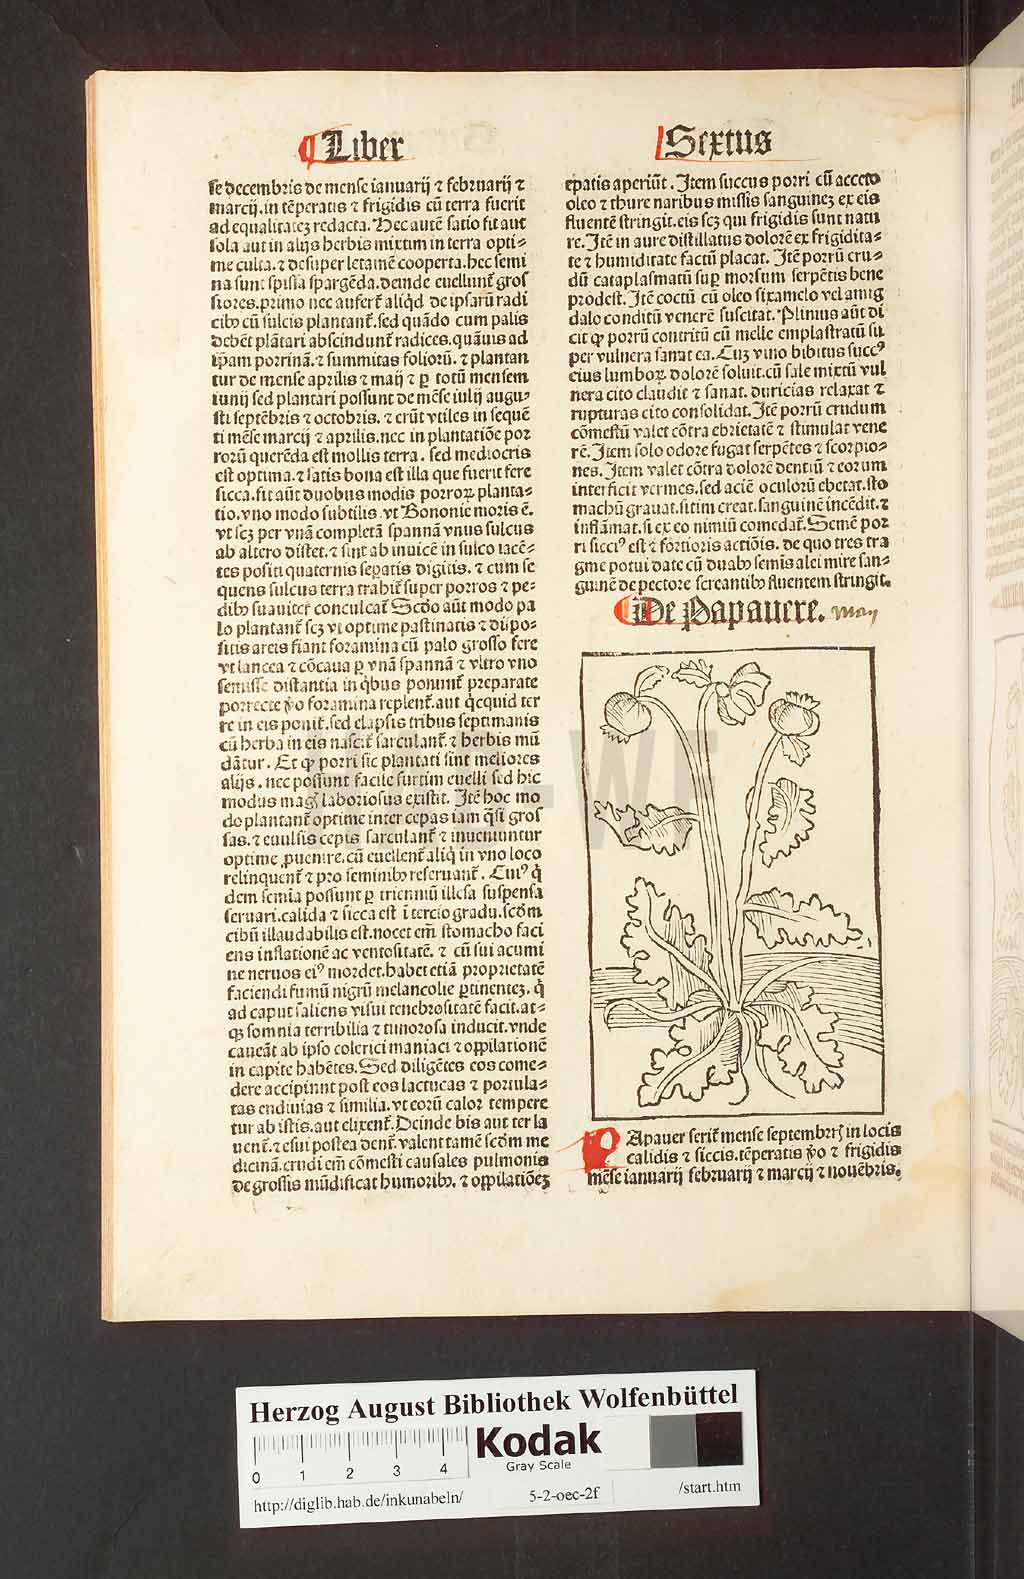 Liber
Sextus
se decembris de mense ianuarij ⁊ februarij ⁊
marcij. in tēperatis ⁊ frigidis cū terra fuerit
ad equalitatez redacta. Hec autē satio fit aut
sola aut in alijs herbis mixtim in terra opti⸗
me culta. ⁊ desuper letamē cooperta. hec semi
na sunt spissa spargēda. deinde euellunt᷑ gros
siores. primo nec aufert᷑ aliqd de ipsarū radi
cibꝫ cū sulcis plantant᷑. sed quādo cum palis
debēt plātari abscindunt᷑ radices. quāuis ad
ip̄am porrinā. ⁊ summitas folioꝝ. ⁊ plantan
tur de mense aprilis ⁊ maij ⁊ ꝑ totū mensem
iunij sed plantari possunt de mēse iulij augu⸗
sti septēbris ⁊ octobris. ⁊ erūt vtiles in sequē
ti mēse marcij ⁊ aprilis. nec in plantatiōe por
rorū querēda est mollis terra. sed mediocris
est optima. ⁊ satis bona est illa que fuerit fere
sicca. fit aūt duobus modis porroꝝ planta⸗
tio. vno modo subtilis. vt Bononie moris ē.
vt scꝫ per vnā completā spannā vnus sulcus
ab altero distet. ⁊ sint ab inuicē in sulco iacē⸗
tes positi quaternis separatis digitis. ⁊ cum se
quens sulcus terra trahit᷑ super porros ⁊ pe⸗
dibꝫ suauiter conculcat᷑ Scdo aūt modo pa
lo plantant᷑ scꝫ vt optime pastinatis ⁊ dispo⸗
sitis areis fiant foramina cū palo grosso fere
vt lancea ⁊ cōcaua ꝑ vnā spannā ⁊ vltro vno
semisse distantia in qbus ponunt᷑ preparate
porrecte ꝟo foramina replent᷑. aut qcquid ter
re in eis ponit᷑. sed elapsis tribus septimanis
cū herba in eis nascit᷑ sarculant᷑. ⁊ herbis mū
dātur. Et qꝫ porri sic plantati sint meliores
alijs. nec possunt facile furtim euelli sed hic
modus mag᷒ laboriosus existit. Itē hoc mo
do plantant᷑ optime inter cepas iam q̄si gros
sas. ⁊ euulsis cepis sarculant᷑ ⁊ inueniuntur
optime ꝓuenire. cū euellent᷑ aliq in vno loco
relinquent᷑ ⁊ pro seminibꝫ reseruant᷑. Cuiꝰ q
dem semīa possunt ꝑ trienniū illesa suspensa
seruari. calida ⁊ sicca est ī tercio gradu. scdm
cibū illaudabilis est. nocet em̄ stomacho faci
ens inflationē ac ventositatē. ⁊ cū sui acumi
ne neruos eiꝰ mordet. habet etiā proprietatē
faciendi fumū nigrū melancolie ꝑtinentez. q
ad caput saliens visui tenebrositatē facit. at⸗
qꝫ somnia terribilia ⁊ timorosa inducit. vnde
caueāt ab ipso colerici maniaci ⁊ oppilationē
in capite habētes. Sed diligētes eos come⸗
dere accipiunt post eos lactucas ⁊ portula⸗
tas endiuias ⁊ similia. vt eorū calor tempere
tur ab istis. aut elixent᷑. Deinde bis aut ter la
uent᷑. ⁊ esui postea dent᷑. valent tamē scdm me
dicinā. crudi em̄ cōmesti causales pulmonis
de grossis mūdificat humoribꝫ. ⁊ oppilatiōes
epatis aperiūt. Item succus porri cū acceto
oleo ⁊ thure naribus missis sanguinez ex eis
fluentē stringit. eis scꝫ qui frigidis sunt natu
re. Itē in aure distillatus dolorē ex frigidita⸗
te ⁊ humiditate factū placat. Itē porrū cru⸗
dū cataplasmatū suꝑ morsum serpētis bene
prodest. Itē coctū cū oleo sixamelo vel amig
dalo conditū venerē suscitat. Plinius aūt di
cit qꝫ porrū contritū cū melle emplastratū su
per vulnera sanat ea. Cuz vino bibitus succꝰ
eius lumboꝝ dolorē soluit. cū sale mixtū vul
nera cito claudit ⁊ sanat. duricias relaxat ⁊
rupturas cito consolidat. Itē porrū crudum
cōmestū valet cōtra ebrietatē ⁊ stimulat vene
rē. Item solo odore fugat serpētes ⁊ scorpio⸗
nes. Item valet cōtra dolorē dentiū ⁊ eorum
interficit vermes. sed aciē oculorū ebetat. sto
machū grauat. sitim creat. sanguinē incēdit. ⁊
inflāmat. si ex eo nimiū comedat᷑. Semē por
ri sicciꝰ est ⁊ fortioris actiōis. de quo tres tra
gme potui date cū duabꝫ semīs alei mire san⸗
guinē de pectore screantibꝫ fluentem stringit.
De Papauere. May
PApauer serit᷑ mense septembrꝭ in locis
calidis ⁊ siccis. tēperatis ꝟo ⁊ frigidis
mēse ianuarij februarij ⁊ marcij ⁊ nouēbris.
HAB-WF
Herzog August Bibliothek Wolfenbüttel
0 1 2 3 4
Kodak
Gray Scale
http://diglib.hab.de/inkunabeln/
5-2-oec-2f
/start.htm